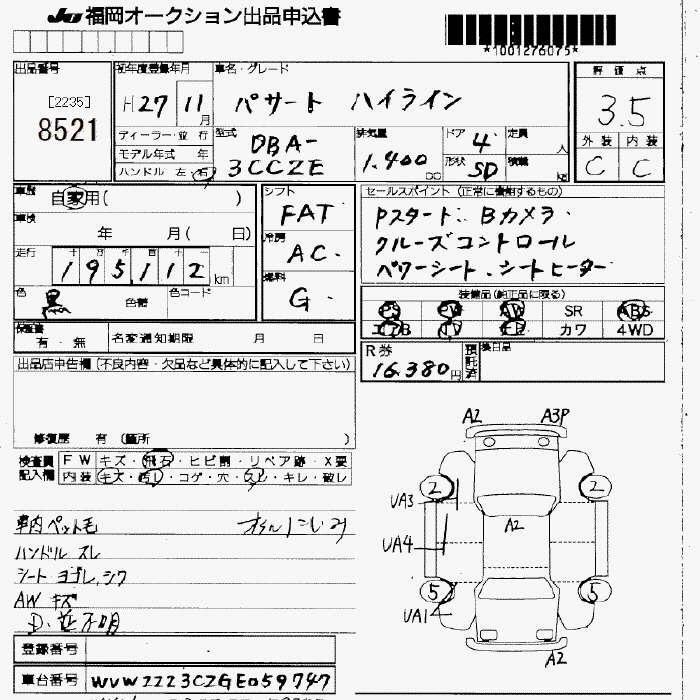 JU 福岡オークション出品申込書
*1001276075*
出品番号
[2235]
8521
初年度登録年月
H27 11月
車名・グレード
パサート ハイライン
評価点
3.5
外装 内装
C C
ディーラー・並行
モデル年式 年
ハンドル 左・右
型式
DBA-
3CCZE
排気量
1.400 cc
ドア 4
形状 SD
定員 人
積載 kg
車歴 自家用( )
車検 年 月( 日)
走行 195,112 km
色 黒 色替
色コード
シフト
FAT
冷房
AC
燃料
G
セールスポイント (正常に機能するもの)
Pスタート Bカメラ
クルーズコントロール
パワーシート、シートヒーター
装備品(純正品に限る)
PS PW AW SR ABS
エアB TV ナビ カワ 4WD
保証書 有・無
名変通知期限 月 日
R券
16.380円
預託済
後日品
出品店申告欄(不良内容・欠品など具体的に記入して下さい)
修復歴 有 (箇所 )
検査員記入欄
FW キズ・飛石・ヒビ割・リペア跡・X要
内装 キズ・汚レ・コゲ・穴・スレ・キレ・破レ
車内ペット毛 オイルにじみ
ハンドル スレ
シート ヨゴレ、シワ
AW キズ
D・並不明
登録番号
車台番号 WVWZZZ3CZGE059747
A2 A3P
2 2
UA3
A2
UA4
5 5
UA1
A2